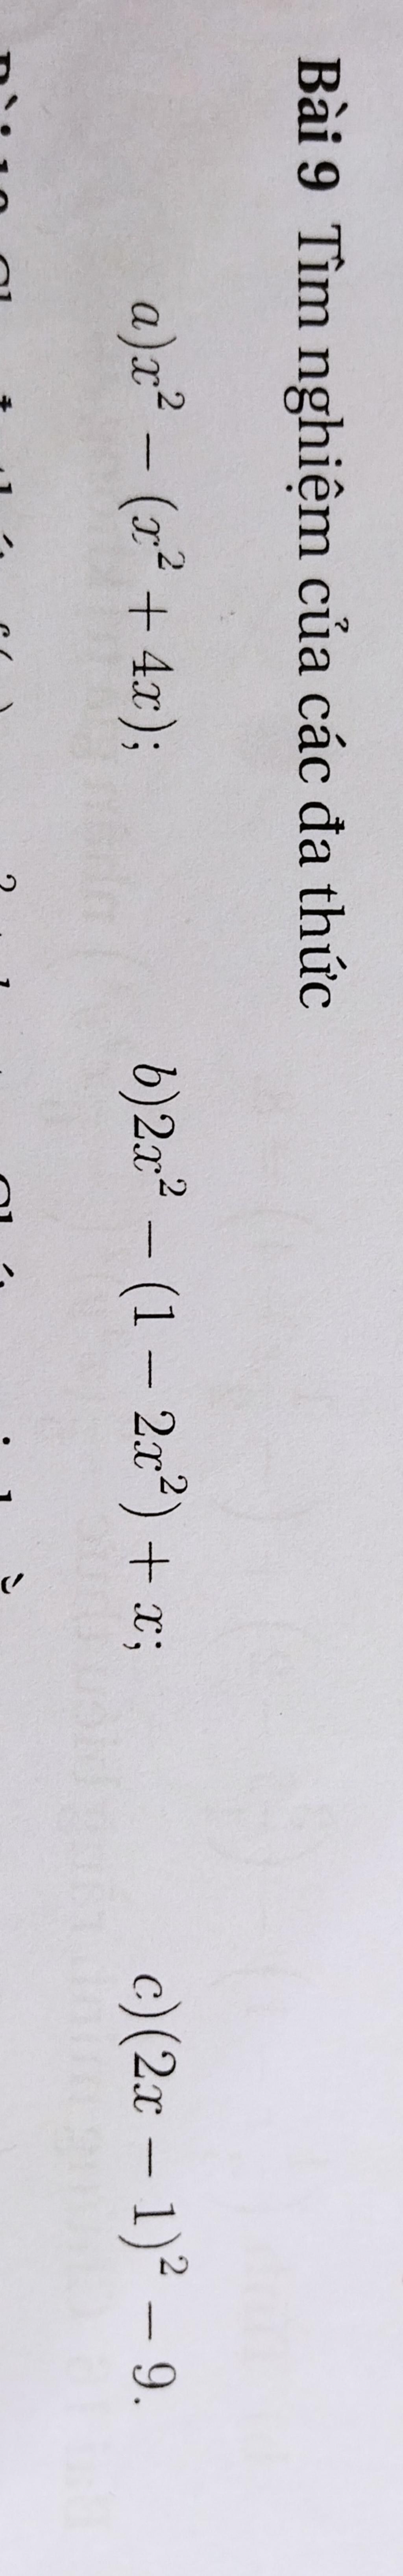 Bài 9 Tìm nghiệm của các đa thức
a)x² − (x² + 4x); b)2x² − (1 − 2x²) + x; c)(2x − 1)² − 9.